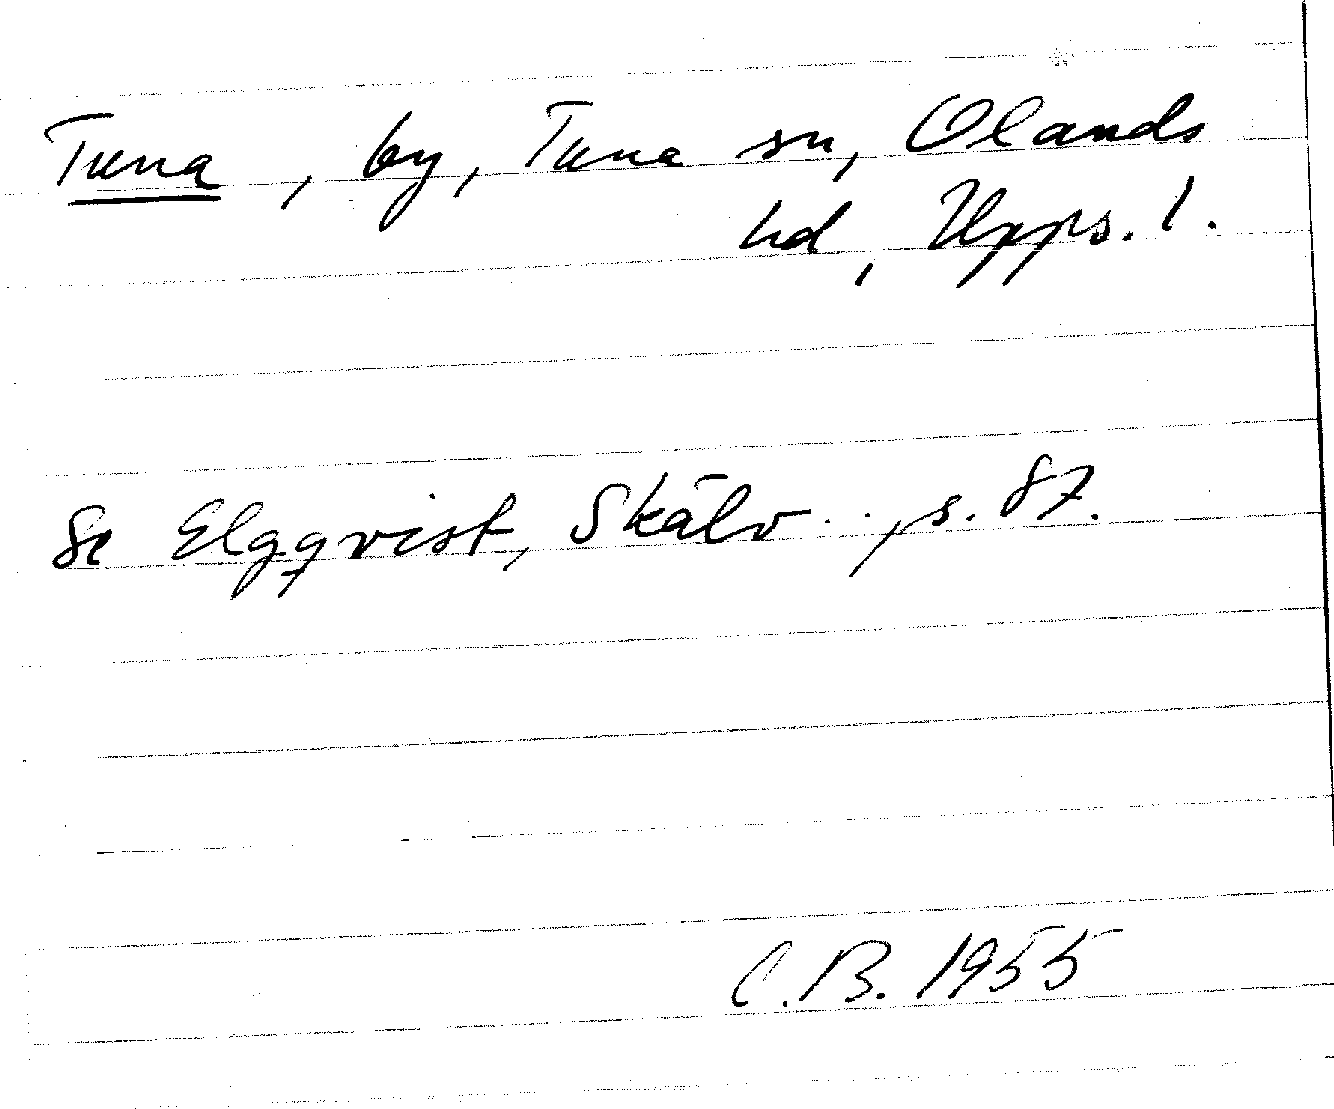 Tuna, by, Tuna sn, Olands
hd, Upps. l.
Se Elgqvist, Skälv..., s. 87.
C.B. 1955